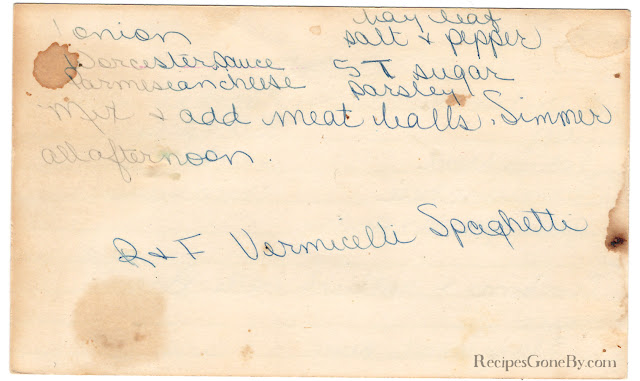 bay leaf
1 onion salt & pepper
Worcester sauce 5 T sugar
Parmesean cheese parsley
Mix & add meat balls. Simmer
all afternoon.
R & F Varmicelli Spaghetti
RecipesGoneBy.com